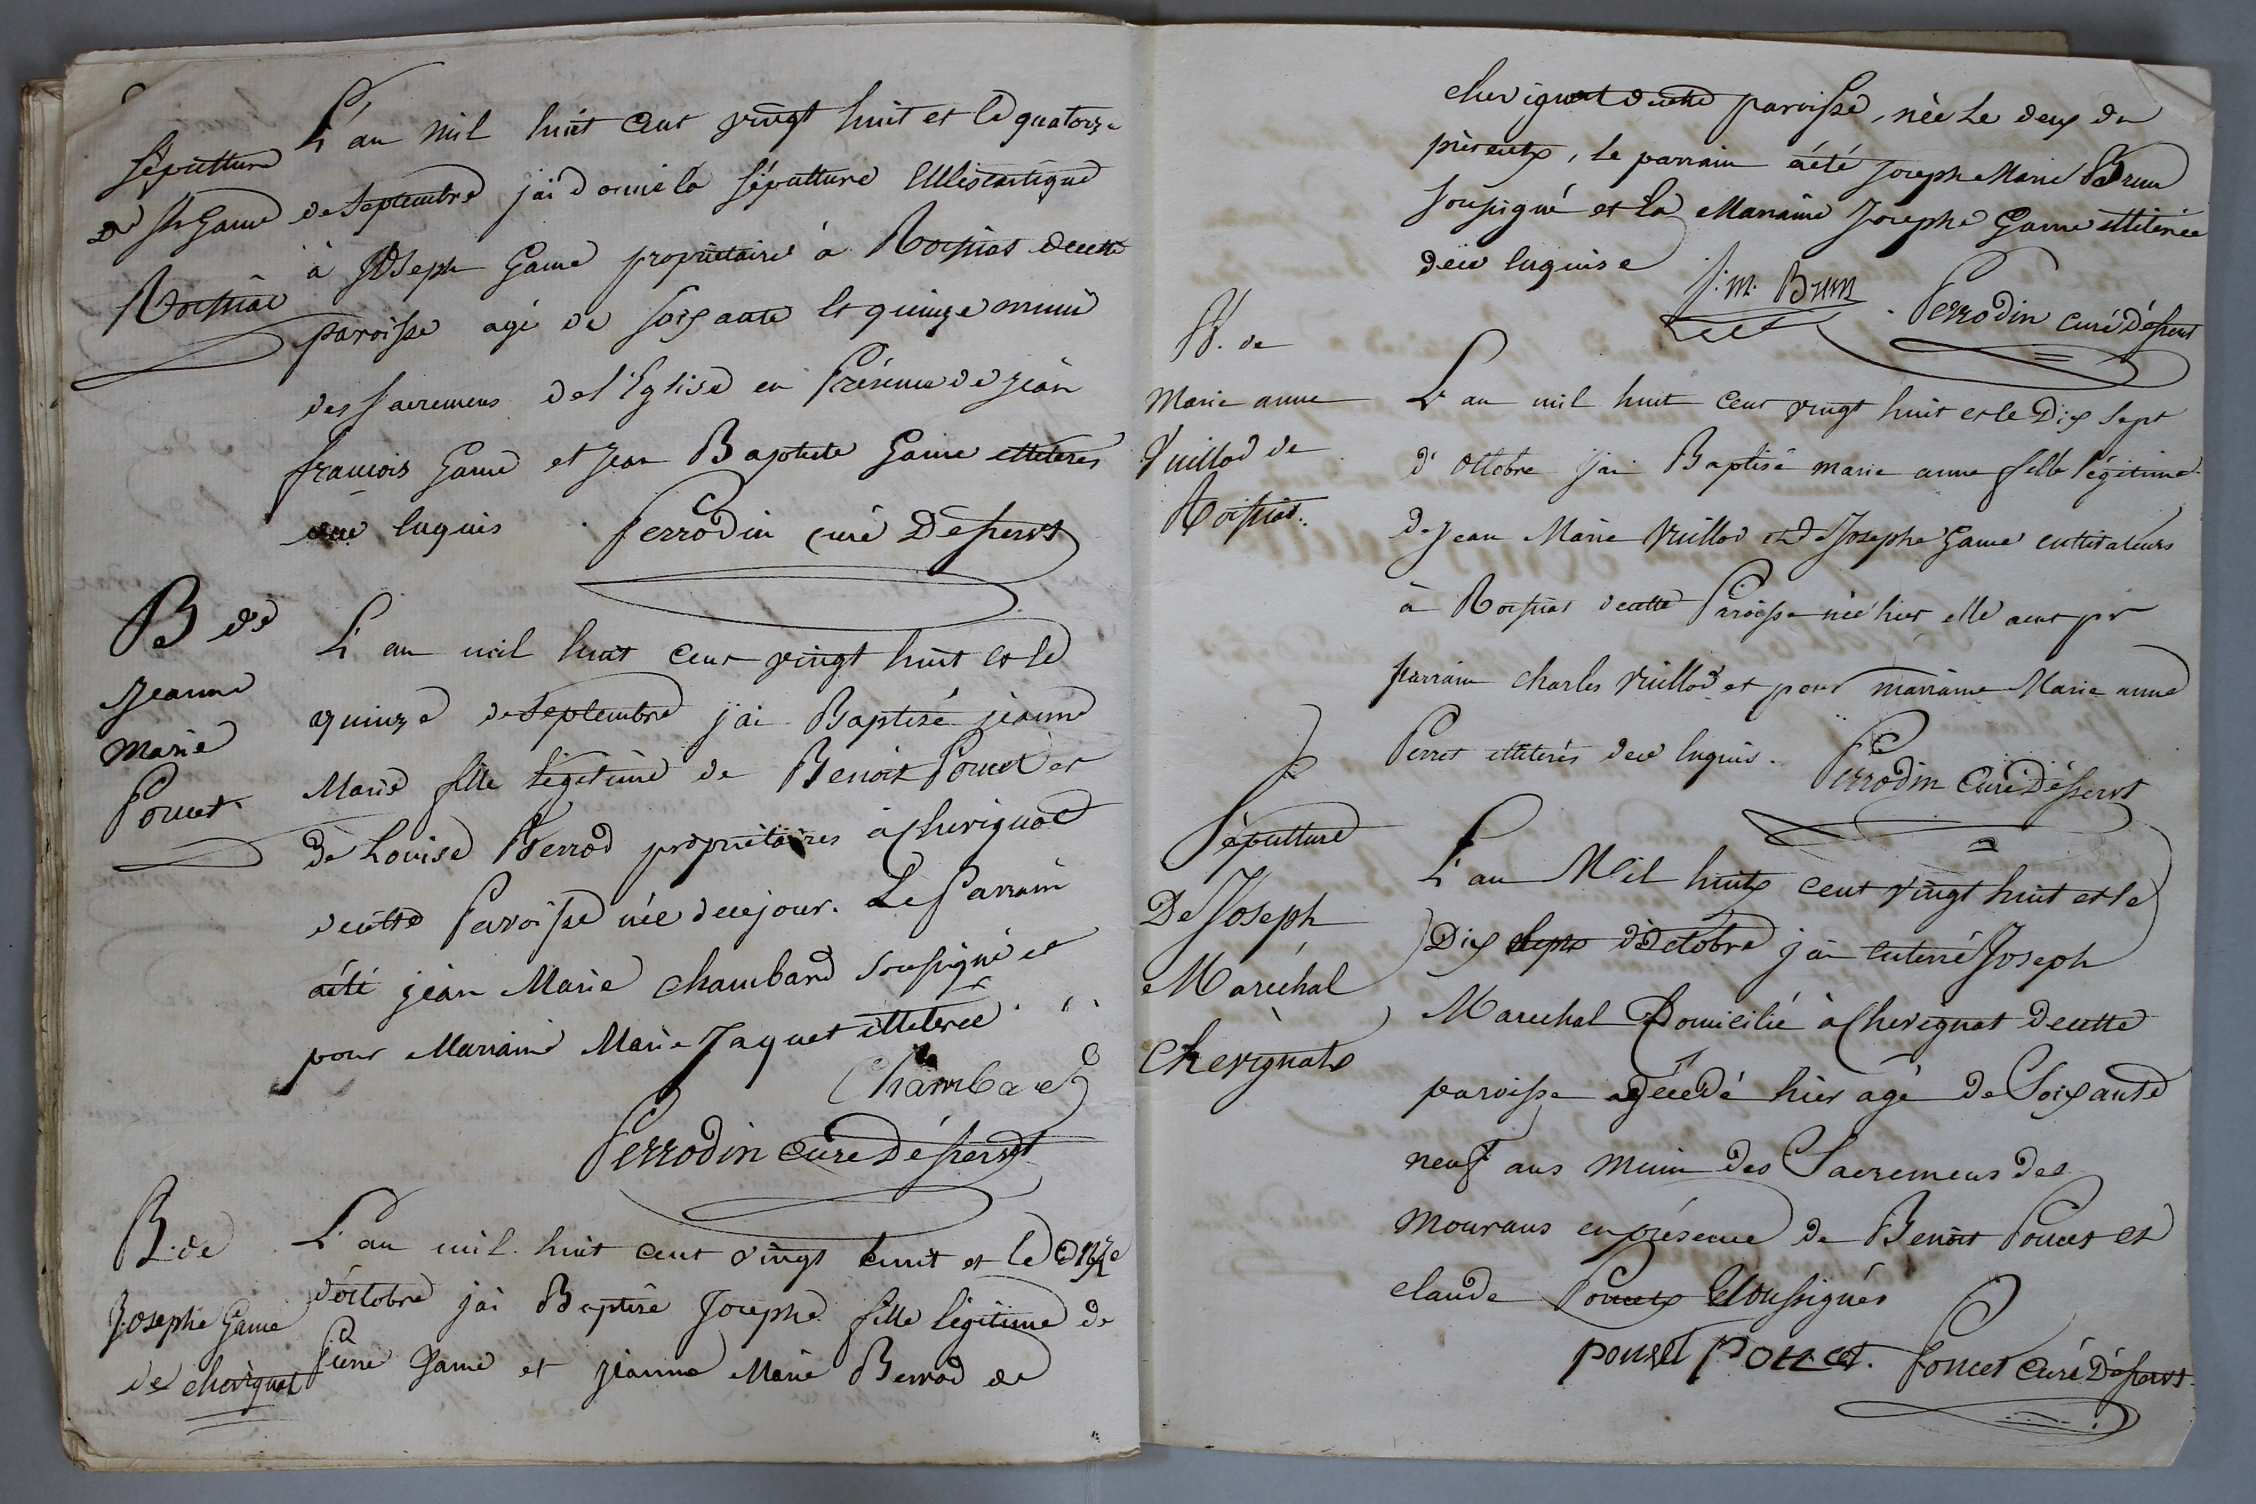 Sépulture
de Jh Game
Roissiat
L'an mil huit cent vingt huit et le quatorze
de Septembre j'ai donné la sépulture Ecclésiastique
à Joseph Game propriétaire à Roissiat de cette
paroisse agé de soixante et quinze muni
des sacremens de l'Eglise en présence de jean
francois Game et Jean Baptiste Game illiterés
enquis Perrodin curé Desservt
B de
Jeanne
Marie
Poncet
L'an mil huit cent vingt huit et le
quinze de Septembre j'ai Baptisé jeanne
Marie fille légitime de Benoit Poncet et
de Louise Berrod propriétaires à Chevignat
de cette Paroisse née de ce jour. Le Parrain
a été jean Marie Chambard soussigné et
pour Marraine Marie Jaquet illiterée
Chambard
Perrodin curé Désservt
B. de
Josephe Game
de chevignat
L'an mil huit cent vingt huit et le onze
d'octobre j'ai Baptisé Josephe fille légitime de
Pierre Game et jeanne Marie Berrod de
chevignat de cette paroisse, née le deux du
présent, le parrain a été Joseph Marie Brun
soussigné et la Marraine Josephe Game illiterée
de ce enquise
J. M. Brun
Perrodin curé Désservt
B. de
Marie anne
Vuillod de
Roissiat.
L'an mil huit cent vingt huit et le Dix sept
d'octobre j'ai Baptisé marie anne fille légitime
de Jean Marie Vuillod et de Josephe Game cultivateurs
à Roissiat de cette Paroisse née hier elle a eut pr
parrain Charles Vuillod et pour marraine Marie anne
Perret illiterés de ce enquis.
Perrodin Curé Désservt
Sépulture
De Joseph
Maréchal
Chevignat
L'an Mil huit cent vingt huit et le
Dix sept d'octobre j'ai enterré Joseph
Marechal Domicilié à Chevignat de cette
paroisse décédé hier agé de Soixante
neuf ans muni des Sacremens des
mourans en présence de Benoit Poncet et
claude Poncet soussignés
ponset poncet. Poncet Curé Desservt